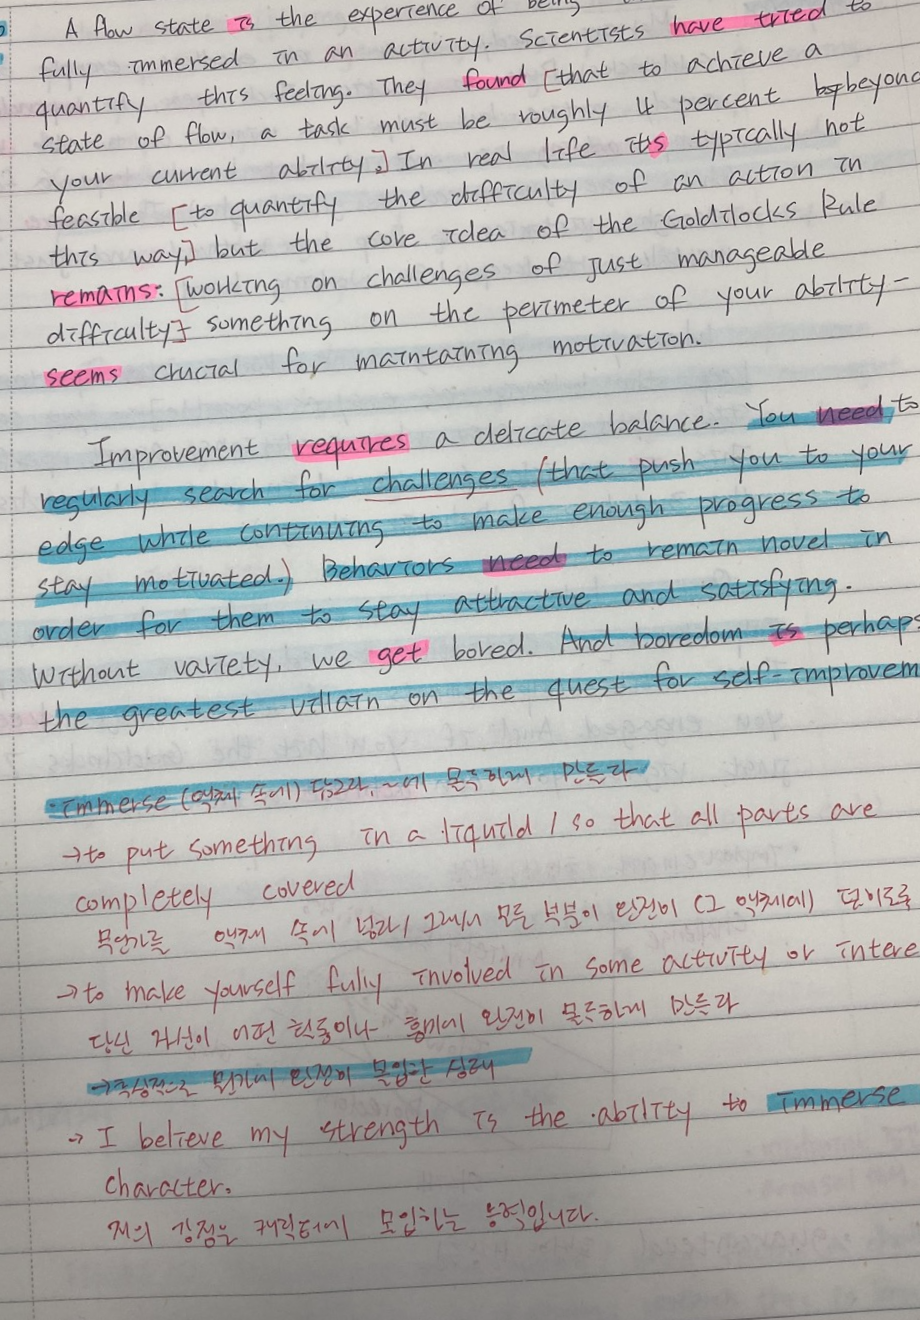 A flow state is the experience of being
fully immersed in an activity. Scientists have tried to
quantify this feeling. They found [that to achieve a
state of flow, a task must be roughly 4 percent beyond
your current ability.] In real life it's typically not
feasible [to quantify the difficulty of an action in
this way,] but the core idea of the Goldilocks Rule
remains: [working on challenges of just manageable
difficulty] something on the perimeter of your ability-
seems crucial for maintaining motivation.
Improvement requires a delicate balance. You need to
regularly search for challenges (that push you to your
edge while continuing to make enough progress to
stay motivated.) Behaviors need to remain novel in
order for them to stay attractive and satisfying.
Without variety, we get bored. And boredom is perhaps
the greatest villain on the quest for self-improvem
·immerse (액체 속에) 담그다, ~에 몰두하게 만들다
→to put something in a liquild / so that all parts are
completely covered
무언가를 액체 속에 넣다/ 그래서 모든 부분이 완전히 (그 액체에) 덮이도록
→to make yourself fully involved in some activity or intere
당신 자신이 어떤 활동이나 흥미에 완전히 몰두하게 만들다
→추상적으로 뭔가에 완전히 몰입한 상태
→ I believe my strength is the ability to immerse
character.
저의 강점은 캐릭터에 몰입하는 능력입니다.